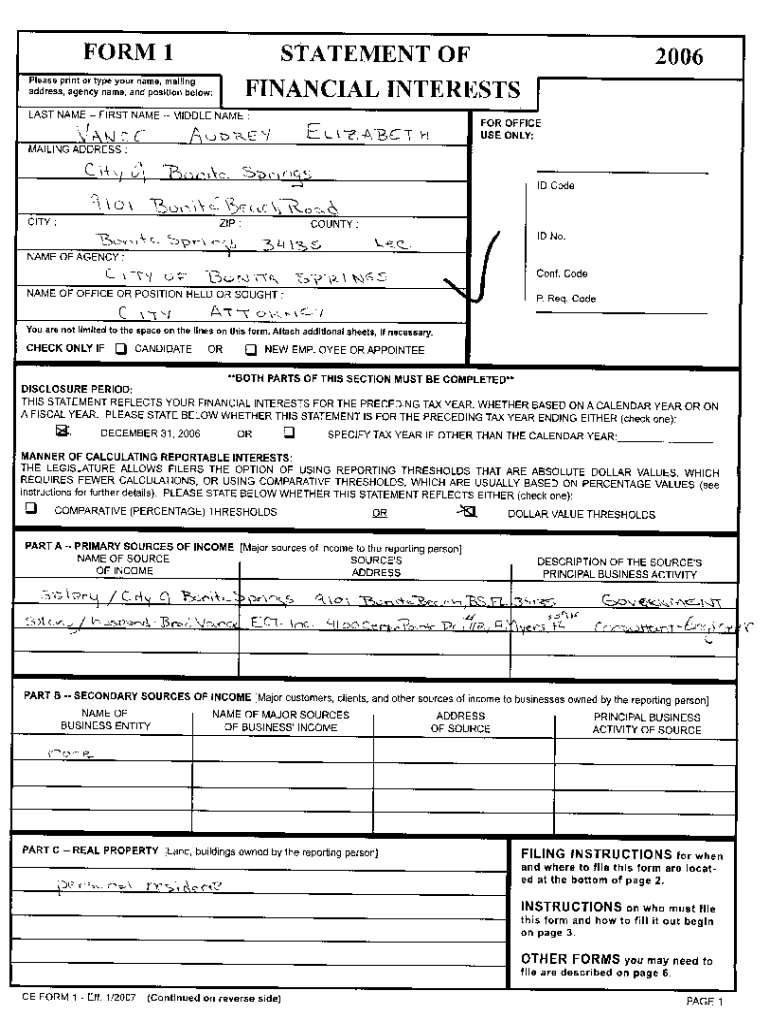 FORM 1 STATEMENT OF 2006
FINANCIAL INTERESTS
Please print or type your name, mailing
address, agency name, and position below:
LAST NAME -- FIRST NAME -- MIDDLE NAME :
VANCE AUDREY ELIZABETH
MAILING ADDRESS :
City of Bonita Springs
9101 Bonita Beach Road
CITY : ZIP : COUNTY :
Bonita Springs 34135 Lee
NAME OF AGENCY :
CITY OF BONITA SPRINGS
NAME OF OFFICE OR POSITION HELD OR SOUGHT :
CITY ATTORNEY
You are not limited to the space on the lines on this form. Attach additional sheets, if necessary.
CHECK ONLY IF CANDIDATE OR NEW EMPLOYEE OR APPOINTEE
FOR OFFICE
USE ONLY:
ID Code
ID No.
Conf. Code
P. Req. Code
**BOTH PARTS OF THIS SECTION MUST BE COMPLETED**
DISCLOSURE PERIOD:
THIS STATEMENT REFLECTS YOUR FINANCIAL INTERESTS FOR THE PRECEDING TAX YEAR, WHETHER BASED ON A CALENDAR YEAR OR ON
A FISCAL YEAR. PLEASE STATE BELOW WHETHER THIS STATEMENT IS FOR THE PRECEDING TAX YEAR ENDING EITHER (check one):
DECEMBER 31, 2006 OR SPECIFY TAX YEAR IF OTHER THAN THE CALENDAR YEAR:
MANNER OF CALCULATING REPORTABLE INTERESTS:
THE LEGISLATURE ALLOWS FILERS THE OPTION OF USING REPORTING THRESHOLDS THAT ARE ABSOLUTE DOLLAR VALUES, WHICH
REQUIRES FEWER CALCULATIONS, OR USING COMPARATIVE THRESHOLDS, WHICH ARE USUALLY BASED ON PERCENTAGE VALUES (see
instructions for further details). PLEASE STATE BELOW WHETHER THIS STATEMENT REFLECTS EITHER (check one):
COMPARATIVE (PERCENTAGE) THRESHOLDS OR DOLLAR VALUE THRESHOLDS
PART A -- PRIMARY SOURCES OF INCOME [Major sources of income to the reporting person]
NAME OF SOURCE SOURCE'S DESCRIPTION OF THE SOURCE'S
OF INCOME ADDRESS PRINCIPAL BUSINESS ACTIVITY
Salary / City of Bonita Springs 9101 Bonita Beach, BS, FL 34135 GOVERNMENT
Salary / husband- Brad Vance ECT, Inc. 4100 Dr Ft Myers, FL Consultant-Engineer
PART B -- SECONDARY SOURCES OF INCOME [Major customers, clients, and other sources of income to businesses owned by the reporting person]
NAME OF NAME OF MAJOR SOURCES ADDRESS PRINCIPAL BUSINESS
BUSINESS ENTITY OF BUSINESS' INCOME OF SOURCE ACTIVITY OF SOURCE
none
PART C -- REAL PROPERTY [Land, buildings owned by the reporting person]
personal residence
FILING INSTRUCTIONS for when
and where to file this form are locat-
ed at the bottom of page 2.
INSTRUCTIONS on who must file
this form and how to fill it out begin
on page 3.
OTHER FORMS you may need to
file are described on page 6.
CE FORM 1 - Eff. 1/2007 (Continued on reverse side) PAGE 1